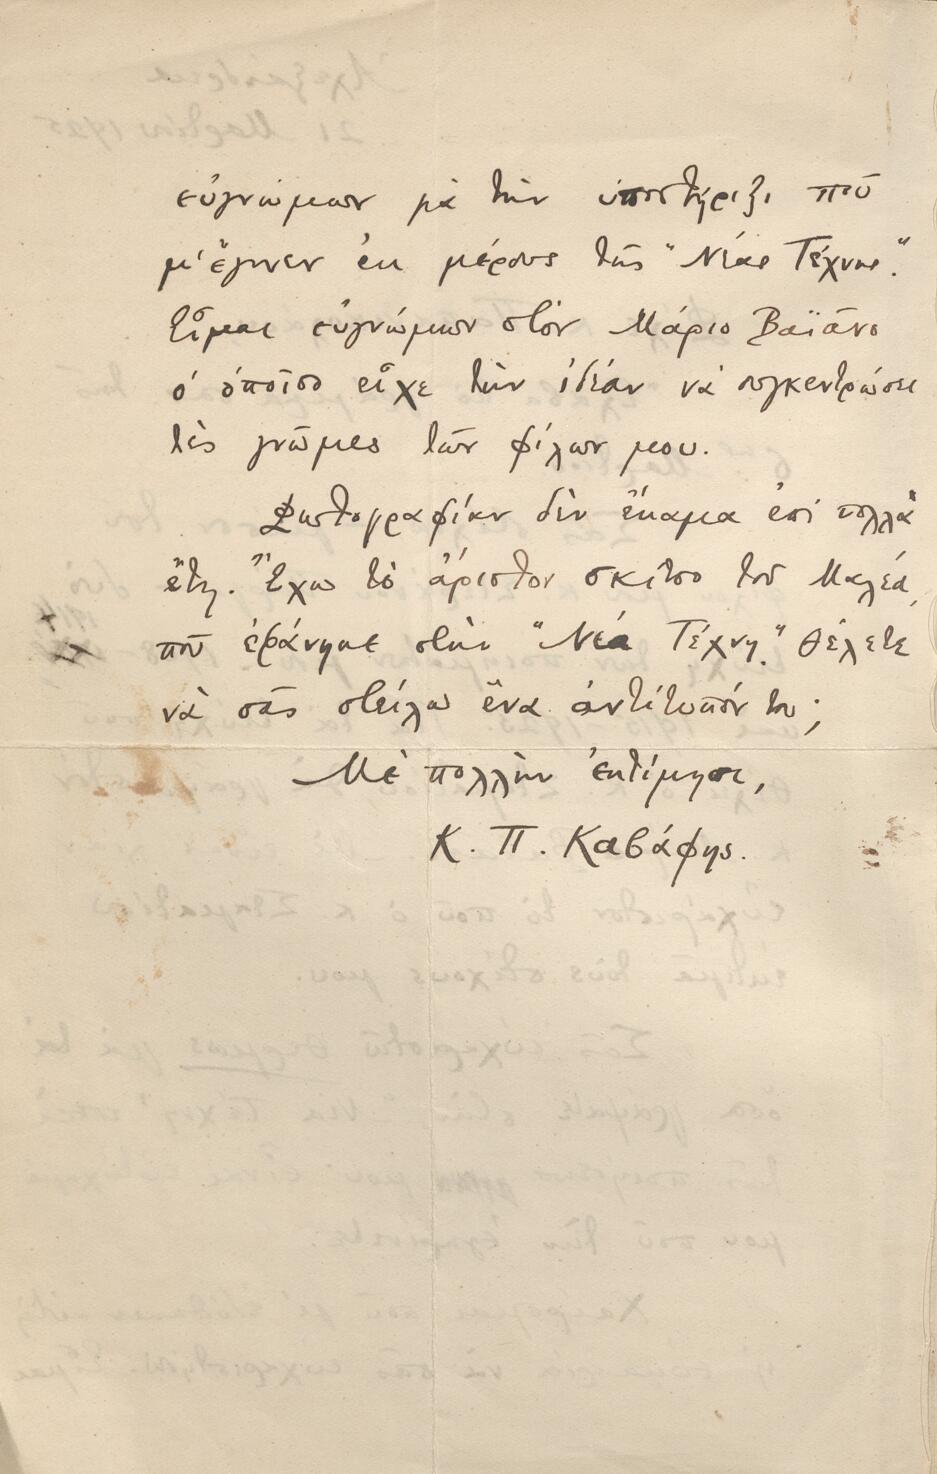 εὐγνώμων μὲ τὴν ὑποστήριξι ποῦ
μ' ἔγινεν ἐκ μέρους τῆς "Νέας Τέχνης".
Εἶμαι εὐγνώμων στὸν Μάριο Βαϊᾶνο
ὁ ὁποῖος εἶχε τὴν ἰδέαν νὰ συγκεντρώσει
τὲς γνῶμες τῶν φίλων μου.
Φωτογραφίαν δὲν ἔκαμα ἐπὶ πολλὰ
ἔτη. Ἔχω τὸ ἄριστον σκίτσο τοῦ Μαλέα,
ποῦ ἐφάνηκε στὴν "Νέα Τέχνη". Θέλετε
νὰ σᾶς στείλω ἕνα ἀντίτυπόν του;
Μὲ πολλὴν ἐκτίμησι,
Κ. Π. Καβάφης.